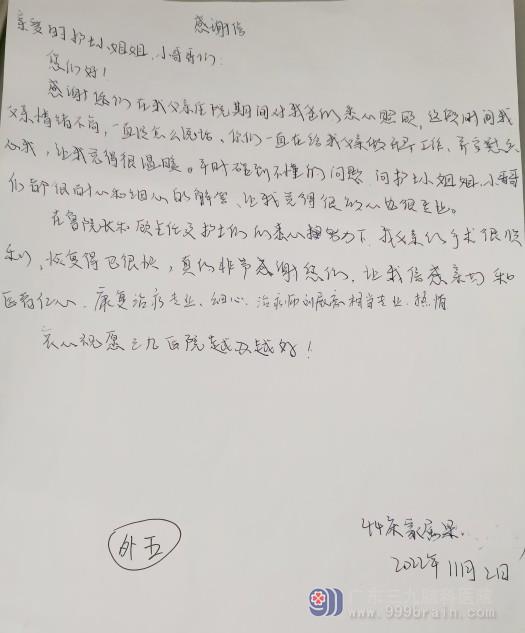 感谢信
亲爱的护士小姐姐、小哥哥们:
您们好!
感谢您们在我父亲住院期间对我爸的悉心照顾,这段时间我
父亲情绪不高,一直没怎么说话、你们一直在给我父亲做工作、并安慰关
心我,让我觉得很温暖。平时碰到不懂的问题,问护士小姐姐、小哥哥
们都很耐心和细心的解答、让我觉得很放心也很专业。
在鲁院长和欧主任及护士们的悉心努力下,我父亲的手术很顺
利,恢复得也很快,真的非常感谢您们,让我倍感亲切和
医者仁心。康复治疗专业、细心、治疗师刘展斋相当专业、热情
衷心祝愿三九医院越办越好!
44床家属梁.
2022年11月21日
外五
广东三九脑科医院
www.999brain.com